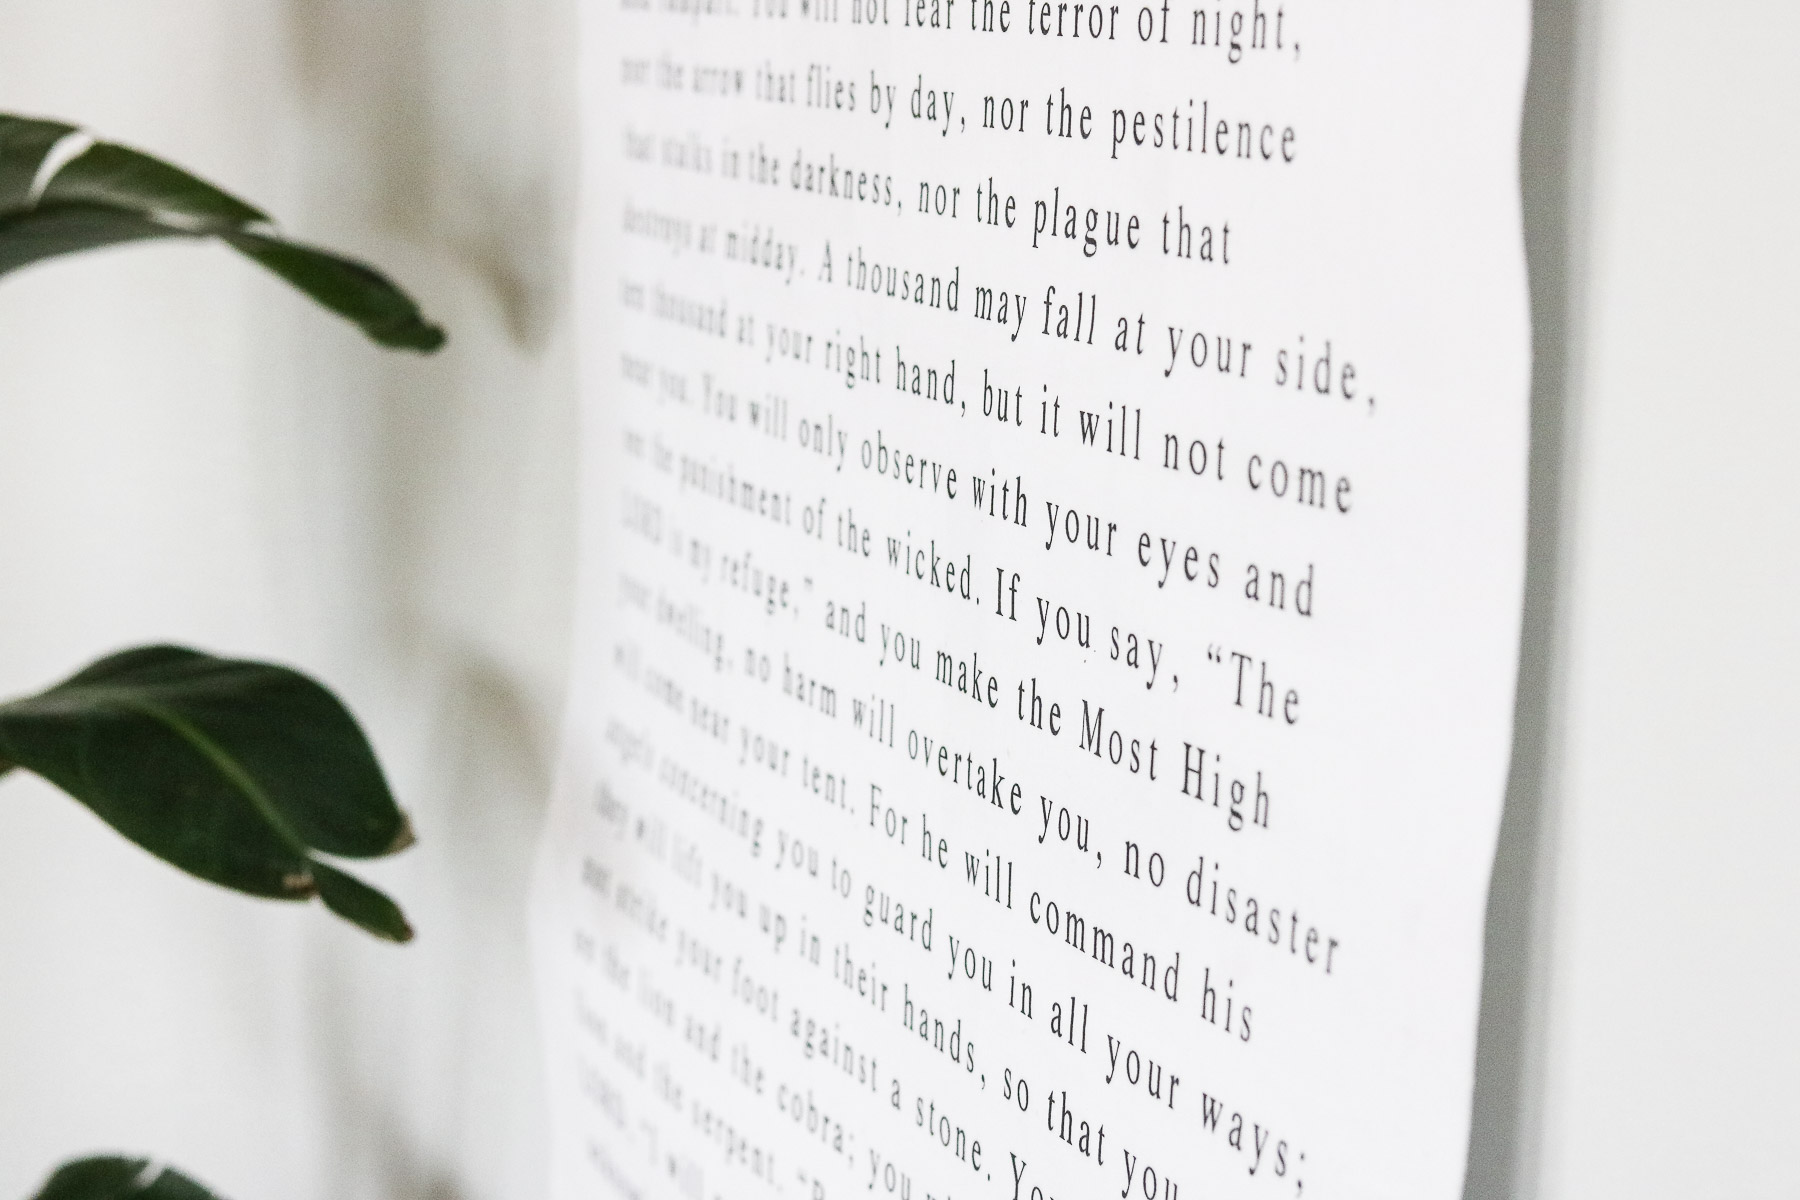 and rampart. You will not fear the terror of night,
nor the arrow that flies by day, nor the pestilence
that stalks in the darkness, nor the plague that
destroys at midday. A thousand may fall at your side,
ten thousand at your right hand, but it will not come
near you. You will only observe with your eyes and
see the punishment of the wicked. If you say, “The
LORD is my refuge,” and you make the Most High
your dwelling, no harm will overtake you, no disaster
will come near your tent. For he will command his
angels concerning you to guard you in all your ways;
they will lift you up in their hands, so that you
your foot against a stone. You
on the lion and the cobra; you
lion and the serpent.
LORD, “I will